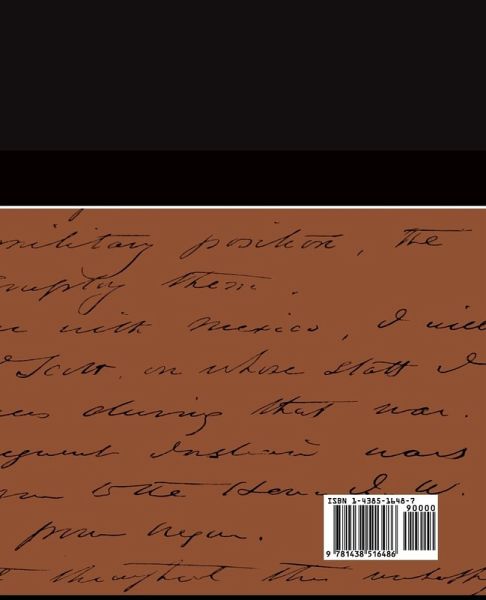 military position, the
them.
with Mexico, I will
Scott, on whose staff I
during that war.
wars
to the Hon. J. W.
throughout the
ISBN 1-4385-1648-7
90000
9 781438 516486